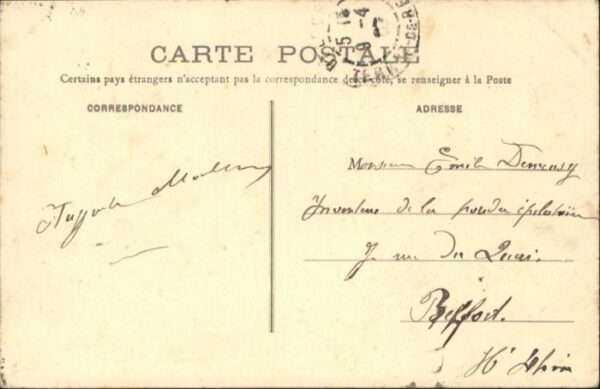 CARTE POSTALE
Certains pays étrangers n'acceptant pas la correspondance de ce côté, se renseigner à la Poste
CORRESPONDANCE
ADRESSE
Monsieur Emile
Inventeur de la poudre épilatoire
7 rue du Quai.
Belfort.
Ht Rhin